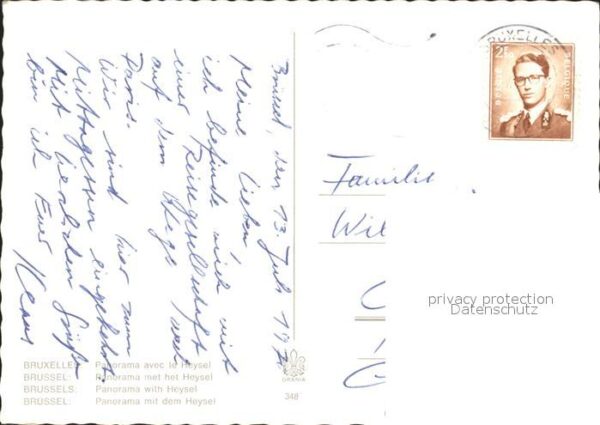 Brüssel, den 13. Juli 197
Meine Lieben
ich befinde mich mit
einer Reisegesellschaft
auf dem Wege nach
Paris.
Wir sind hier zum
Mittagessen eingekehrt.
Mit herzlichen Grüßen
bin ich Euer Klaus
BRUXELLES
2F
BELGIE
BELGIQUE
Familie
Wil
privacy protection
Datenschutz
BRUXELLES: Panorama avec le Heysel
BRUSSEL: Panorama met het Heysel
BRUSSELS: Panorama with Heysel
BRÜSSEL: Panorama mit dem Heysel
348